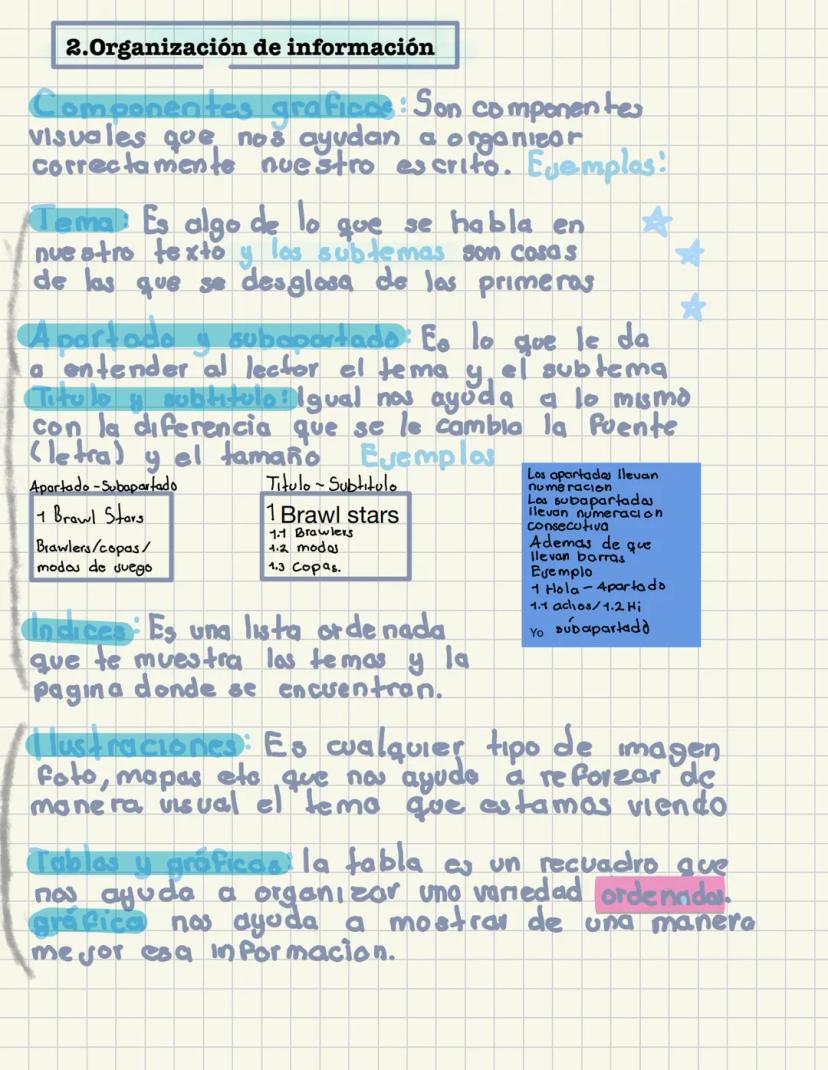 2.Organización de información
Componentes graficos: Son componentes
visuales que nos ayudan a organizar
correctamente nuestro escrito. Ejemplos:
Tema: Es algo de lo que se habla en
nuestro texto y los subtemas son cosas
de las que se desglosa de los primeros
Apartado y subapartado: Es lo que le da
a entender al lector el tema y el subtema
Titulo y subtitulo: Igual nos ayuda a lo mismo
con la diferencia que se le cambia la fuente
(letra) y el tamaño Ejemplos
Apartado - Subapartado
1 Brawl Stars
Brawlers/copas/
modos de juego
Titulo ~ Subtitulo
1 Brawl stars
1.1 Brawlers
1.2 modos
1.3 Copas.
Los apartados llevan
numeracion
Los subapartados
llevan numeracion
consecutiva
Ademas de que
llevan barras
Ejemplo
1 Hola - Apartado
1.1 achos/1.2 Hi
Yo subapartado
Indices: Es una lista ordenada
que te muestra los temas y la
pagina donde se encuentran.
Ilustraciones: Es cualquier tipo de imagen
foto, mapas etc que nos ayuda a reforzar de
manera visual el tema que estamos viendo
Tablas y gráficas: la tabla es un recuadro que
nos ayuda a organizar una variedad ordenada.
gráfica nos ayuda a mostrar de una manera
mejor esa informacion.